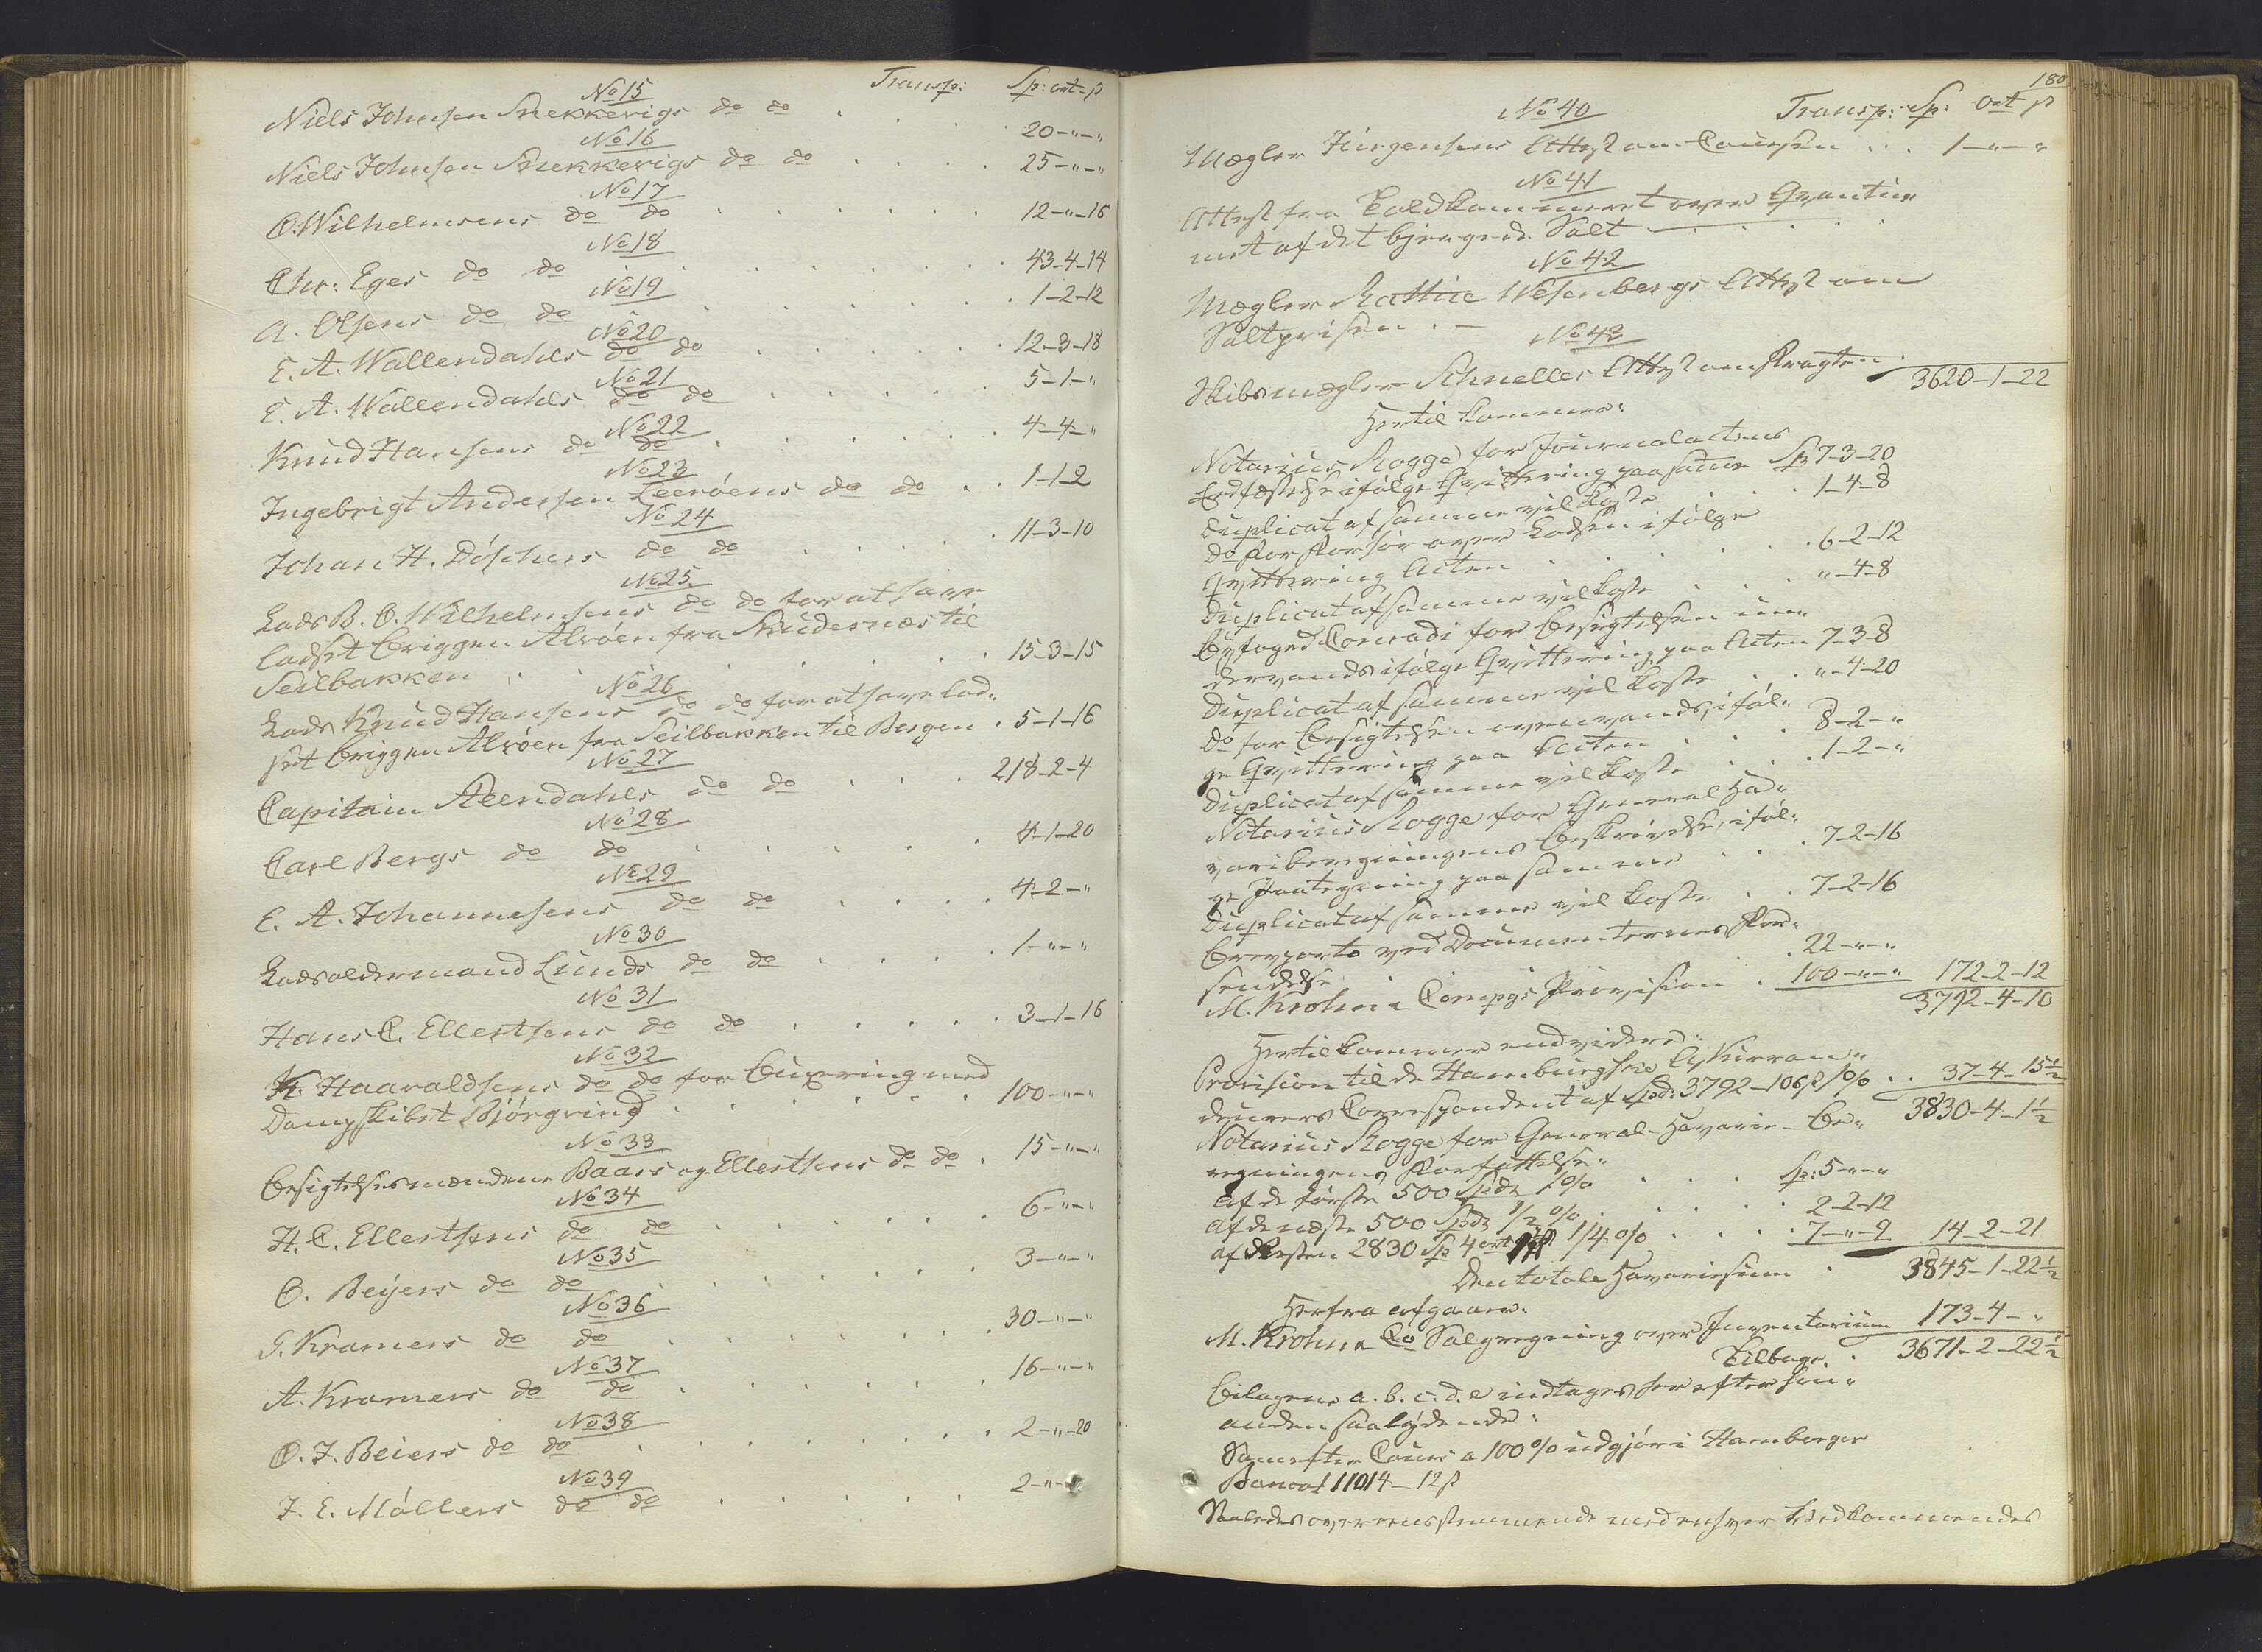 Transp: Sp: ort ß
No 15
Niels Johnsen Snekkerigs do do . . . . 20-"-"
No 16
Niels Johnsen Snekkerigs do do . . . . 25-"-"
No 17
O. Wilhelmsens do do . . . . 12-"-16
No 18
Chr: Eges do do . . . . 43-4-14
No 19
A. Olsens do do . . . . 1-2-12
No 20
E. A. Wallendahls do do . . . . 12-3-18
No 21
E. A. Wallendahls do do . . . . 5-1-"
No 22
Knud Hansens do do . . . . 4-4-"
No 23
Ingebrigt Andersen Leeröens do do . . 1-1-2
No 24
Johan H. Döschers do do . . . . 11-3-10
No 25
Lods B. O. Wilhelmsens do do for at have
lodset Briggen Alvöen fra Skudesnæs til
Seilbakken . . . . 15-3-15
No 26
Lods Knud Hansens do do for at have lod"
set Briggen Alvöen fra Seilbakken til Bergen . 5-1-16
No 27
Capitain Steendahls do do . . . 218-2-4
No 28
Carl Bergs do do . . . . 4-1-20
No 29
E. A. Johannesens do do . . . . 4-2-"
No 30
Lodsoldermand Lunds do do . . . . 1-"-"
No 31
Hans C. Ellertsens do do . . . . 3-1-16
No 32
K. Haaraldsens do do for Buxering med
Dampskibet Bjørgvind . . . . 100-"-"
No 33
Besigtelsesmændene Baars og Ellertsens do do . 15-"-"
No 34
H. C. Ellertsens do do . . . . 6-"-"
No 35
O. Beyers do do . . . . 3-"-"
No 36
G. Kramers do do . . . . 30-"-"
No 37
A. Kramers do do . . . . 16-"-"
No 38
O. J. Beiers do do . . . . 2-"-20
No 39
J. E. Möllers do do . . . . 2-"-
180
Transp: Sp: ort ß
No 40
Mægler Jürgensens Attest om Coursen . . . 1-"-"
No 41
Attest fra Toldkammeret over Qvantu"
met af det bjergede Salt . . . .
No 42
Mægler Wesenbergs Attest om
Saltprisen . -
No 43
Skibsmægler Schnelles Attest om Fragten . 3620-1-22
Hertil kommer:
Notarius Rogge for Journalactens
Edfæstelse ifølge Qvittering paa samme Sp 7-3-20
Duplicat af samme vil koste . . . 1-4-8
Do for Forhør over Lodsen ifølge
Qvittering Acten . . . . 6-2-12
Duplicat af samme vil koste . . . "-4-8
Byfoged Conradi for Besigtelsen un"
dervands ifølge Qvittering paa Acten 7-3-8
Duplicat af samme vil koste . . "-4-20
Do for Besigtelsen ovenvands, iföl"
ge Qvittering paa Acten . . . 8-2-"
Duplicat af samme vil koste . . . 1-2-"
Notarius Rogge for General Ha"
variberegningens Beskrivelse, iföl"
ge Paategning paa samme . . . 7-2-16
Duplicat af samme vil koste . . 7-2-16
Brevporto ved Documenternes For"
sendelse . . 22-"-"
M. Krohn & Compgs Provision . 100-"-" 172-2-12
3792-4-10
Hertil kommer endvidere:
Provision til de Hamburgske Assurran"
deurers Correspondent af Spd: 3792-106ß 1% . . 37-4-15½
3830-4-1½
Notarius Rogge for General-Havarie-Be"
regningens Forfattelse:
af de første 500 Spdr 1% . . . Sp: 5-"-"
af de næste 500 Spdr 1/2% . . . . 2-2-12
af Resten 2830 Sp 4 ort 1/4% . . . . 7-"-9 14-2-21
Den totale Havariesum . 3845-1-22½
Herfra afgaaer:
M. Krohn & Co Salgsregning over Inventarium 173-4-"
Tilbage . 3671-2-22½
Bilagene a. b. c. d. e indtages her efter hin"
anden saalydende:
Som efter Cours a 100% udgjør i Hamborger
Banco 11014-12ß
Saaledes overeensstemmende med enhver Vedkommendes